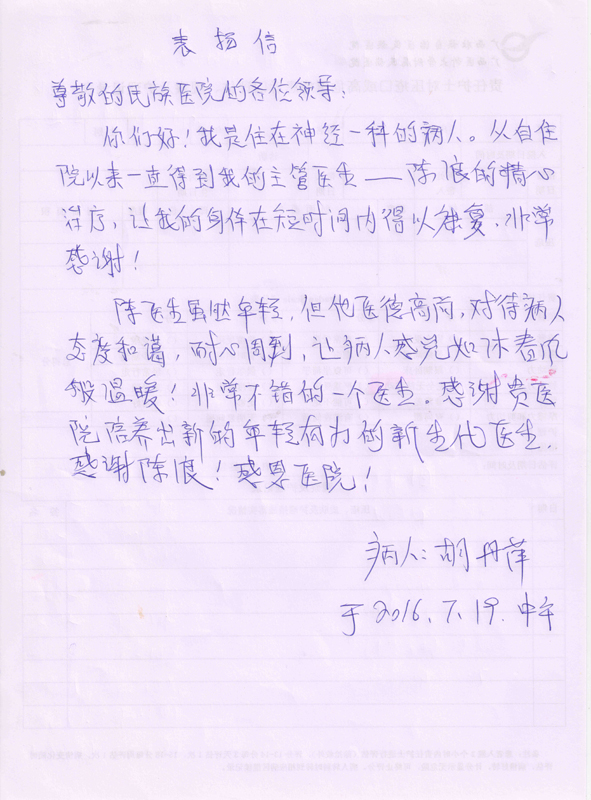 表扬信
尊敬的民族医院的各位领导:
你们好!我是住在神经一科的病人。从自住
院以来一直得到我的主管医生——陈浪的精心
治疗,让我的身体在短时间内得以康复,非常
感谢!
陈医生虽然年轻,但他医德高尚,对待病人
态度和蔼,耐心周到,让病人感觉如沐春风
般温暖!非常不错的一个医生。感谢贵医
院培养出新的年轻有为的新生代医生.
感谢陈浪!感恩医院!
病人:胡丹萍
于2016.7.19.中午